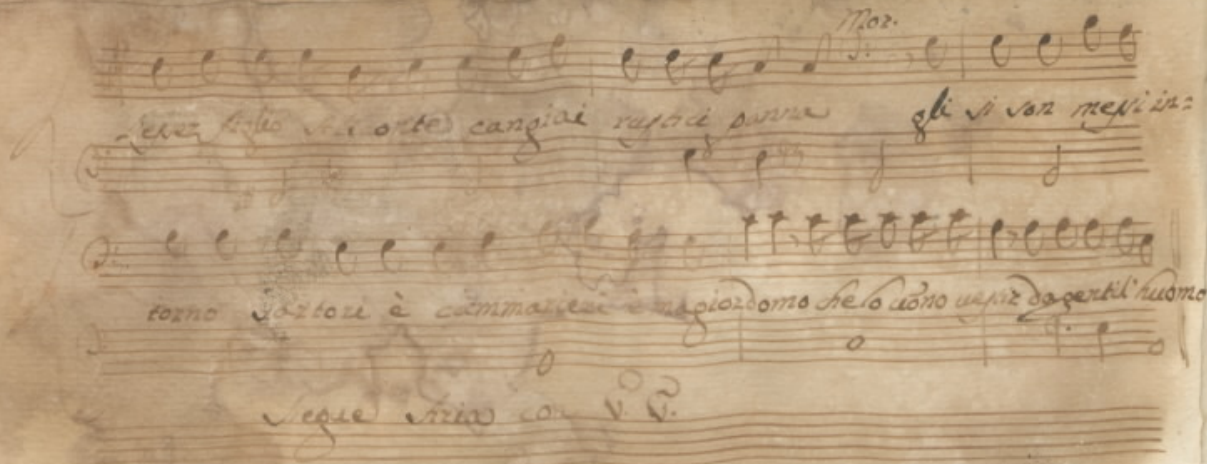 Mor.
figlio cangiai rustici panni gli si son messi in=
torno Sartori è cammarieri è magiordomo che lo uono uestir da gentil'huomo
Segue Aria con V. V.